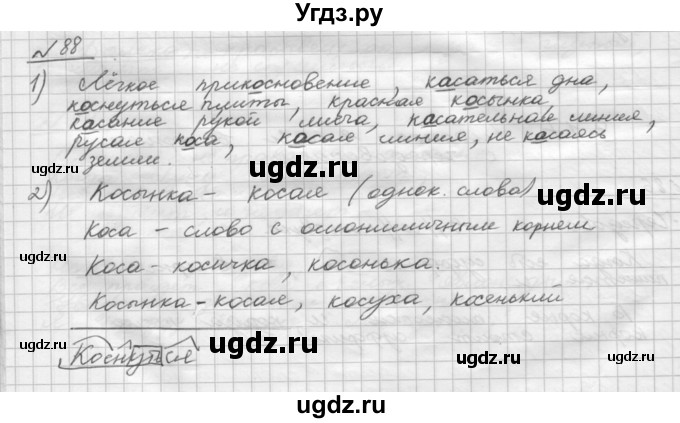 Угдз.ру
№ 88
1) Лёгкое прикосновение, касаться дна,
коснуться плиты, красная косынка,
касание рукой мяча, касательная линия,
русая коса, косая линия, не касаясь
земли.
2) Косынка - косая (однок. слова)
Коса - слово с омонимичным корнем
Коса - косичка, косонька.
Косынка - косая, косуха, косенький
Коснуться
ugdz.ru
ugdz.ru
ugdz.ru
ugdz.ru
ugdz.ru
ugdz.ru
ugdz.ru
ugdz.ru
ugdz.ru
ugdz.ru
ugdz.ru